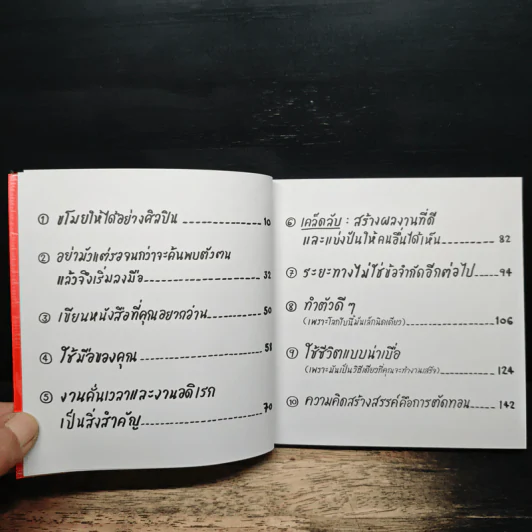 ① ขโมยให้ได้อย่างศิลปิน 10
② อย่ามัวแต่รอจนกว่าจะค้นพบตัวตน
แล้วจึงเริ่มลงมือ 32
③ เขียนหนังสือที่คุณอยากอ่าน 50
④ ใช้มือของคุณ 51
⑤ งานคั่นเวลาและงานอดิเรก
เป็นสิ่งสำคัญ 70
⑥ เคล็ดลับ : สร้างผลงานที่ดี
และแบ่งปันให้คนอื่นได้เห็น 82
⑦ ระยะทางไม่ใช่ข้อจำกัดอีกต่อไป 94
⑧ ทำตัวดีๆ
(เพราะโลกใบนี้มันเล็กนิดเดียว) 106
⑨ ใช้ชีวิตแบบน่าเบื่อ
(เพราะมันเป็นวิธีเดียวที่คุณจะทำงานเสร็จ) 124
⑩ ความคิดสร้างสรรค์คือการตัดทอน 142